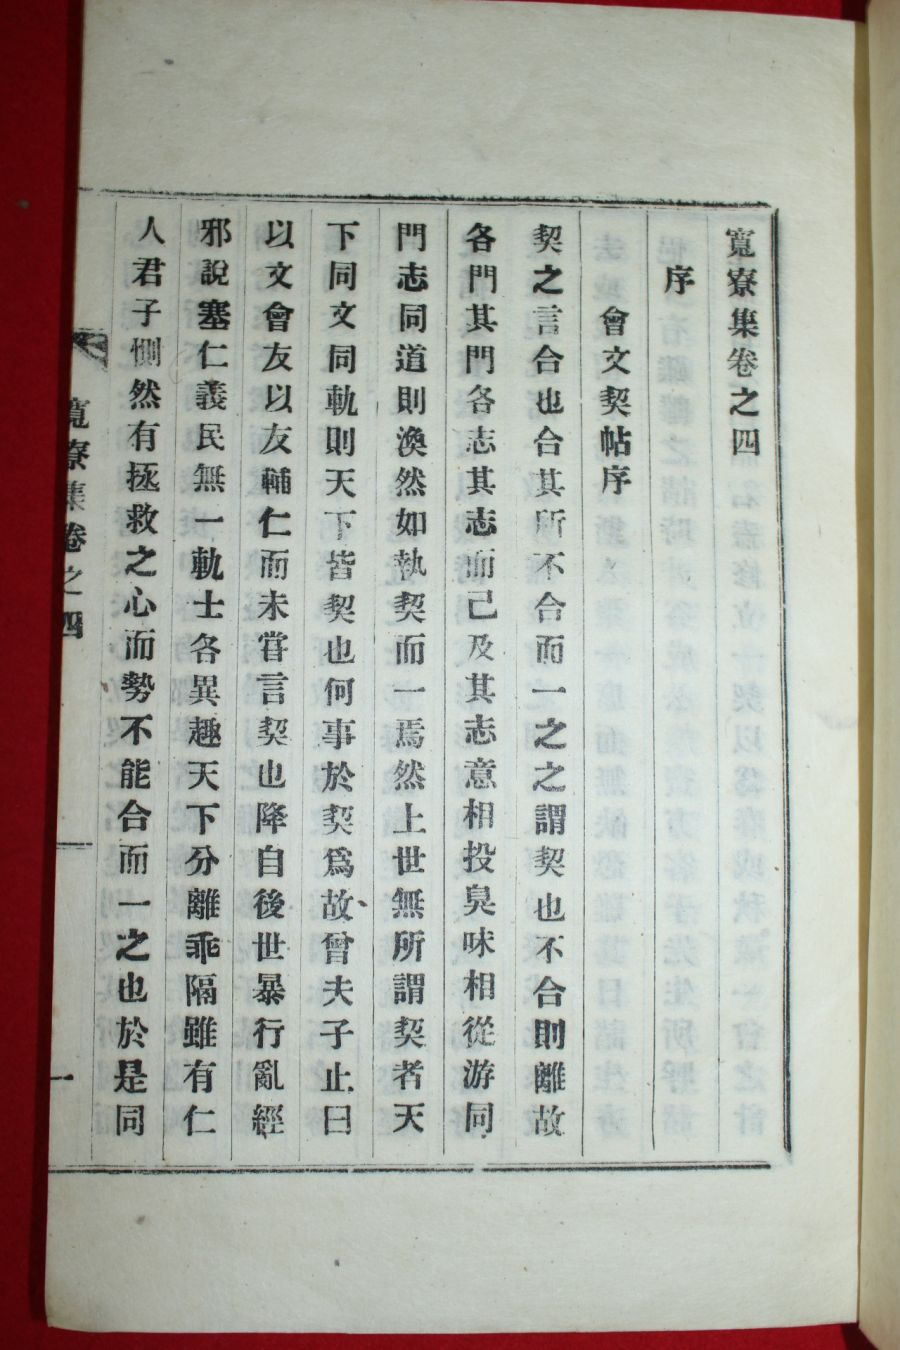 寬寮集卷之四
序
會文契帖序
契之言合也合其所不合而一之之謂契也不合則離故
各門其門各志其志而己及其志意相投臭味相從游同
門志同道則渙然如執契而一焉然上世無所謂契者天
下同文同軌則天下皆契也何事於契爲故曾夫子止曰
以文會友以友輔仁而未甞言契也降自後世暴行亂經
邪說塞仁義民無一軌士各異趣天下分離乖隔雖有仁
人君子惻然有拯救之心而勢不能合而一之也於是同
寬寮集卷之四
一